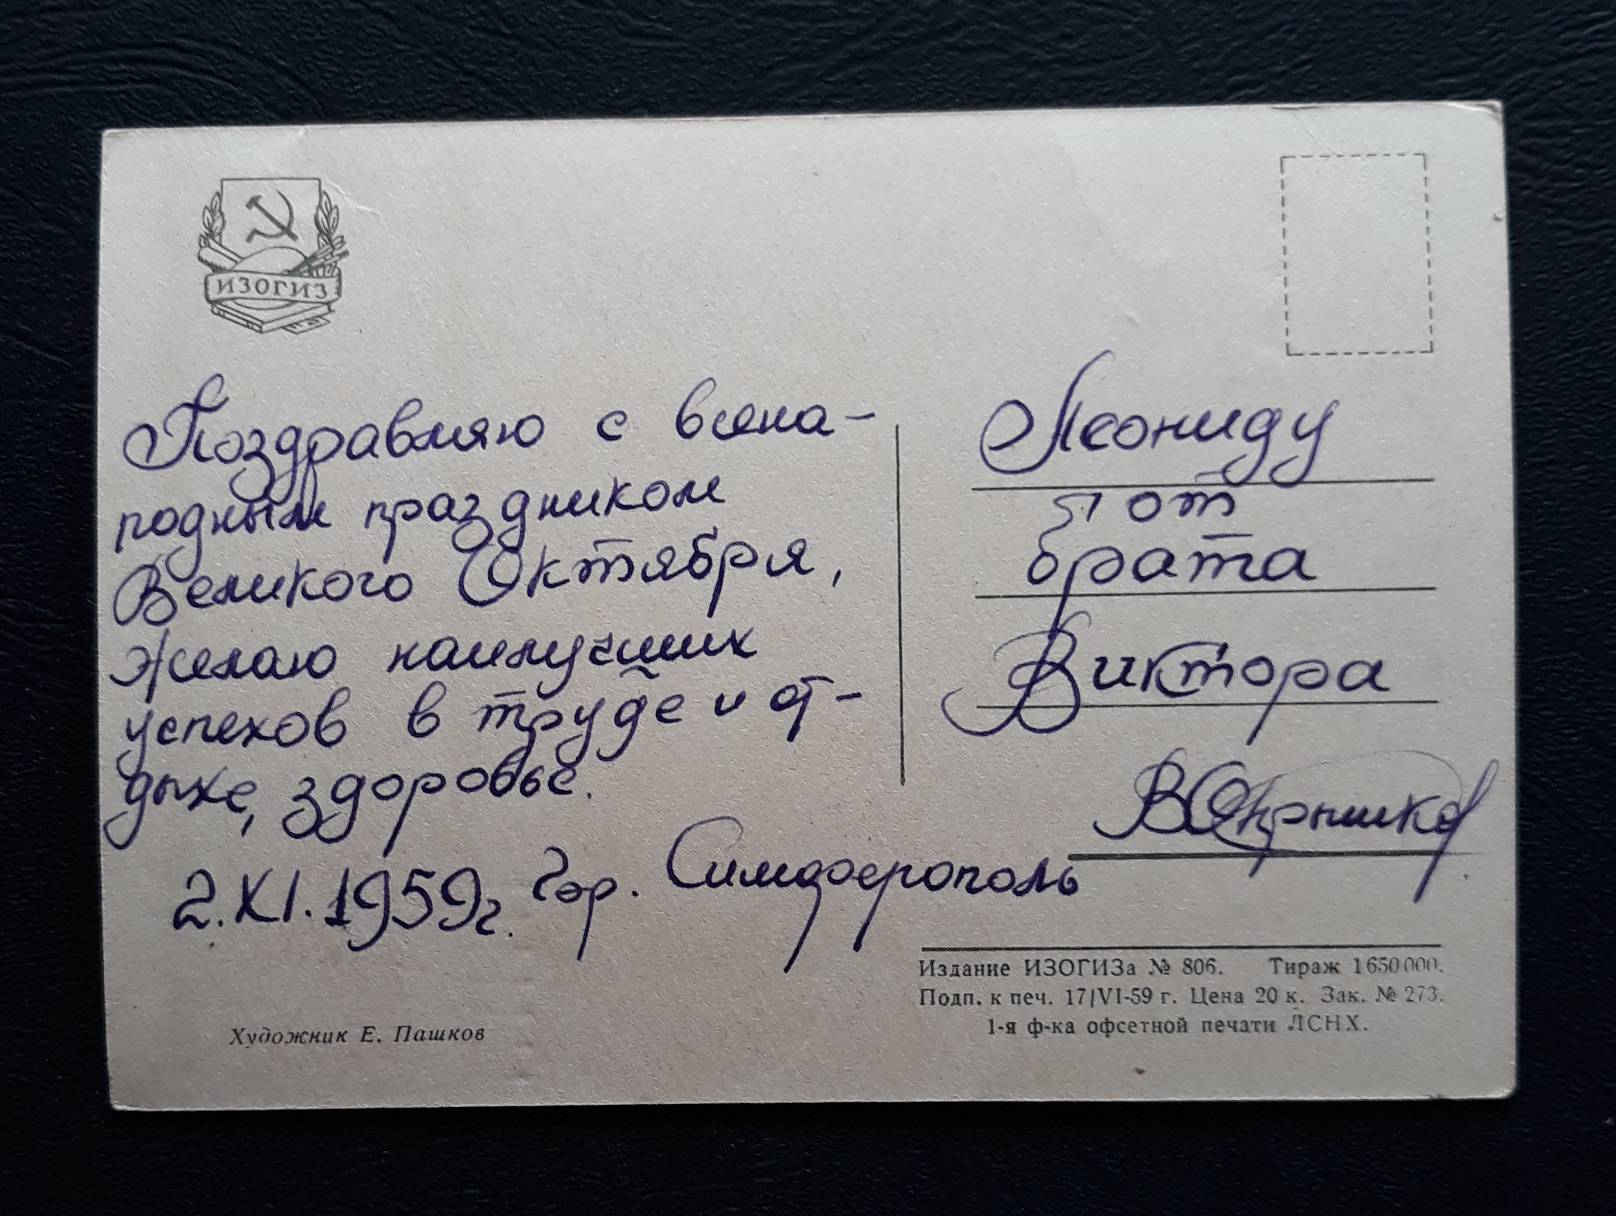 ИЗОГИЗ
Поздравляю с всена-
родным праздником
Великого Октября,
желаю наилучших
успехов в труде и от-
дыхе, здоровье.
2.XI.1959г. Гор. Симферополь
Леониду
от
брата
Виктора
Издание ИЗОГИЗа № 806. Тираж 1 650 000.
Подп. к печ. 17/VI-59 г. Цена 20 к. Зак. № 273.
1-я ф-ка офсетной печати ЛСНХ.
Художник Е. Пашков